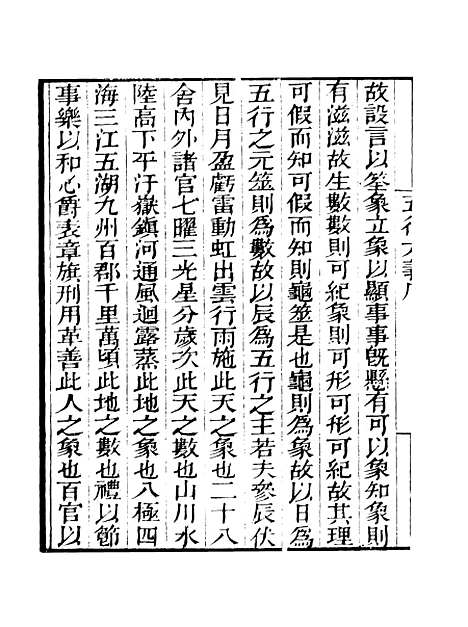 五行大義序
故設言以筌象立象以顯事事旣懸有可以象知象則
有滋滋故生數數則可紀象則可形可形可紀故其理
可假而知可假而知則龜筮是也龜則爲象故以日爲
五行之元筮則爲數故以辰爲五行之主若夫參辰伏
見日月盈虧雷動虹出雲行雨施此天之象也二十八
舍內外諸官七曜三光星分歲次此天之數也山川水
陸高下平汙嶽鎭河通風迴露蒸此地之象也八極四
海三江五湖九州百郡千里萬頃此地之數也禮以節
事樂以和心爵表章旗刑用革善此人之象也百官以